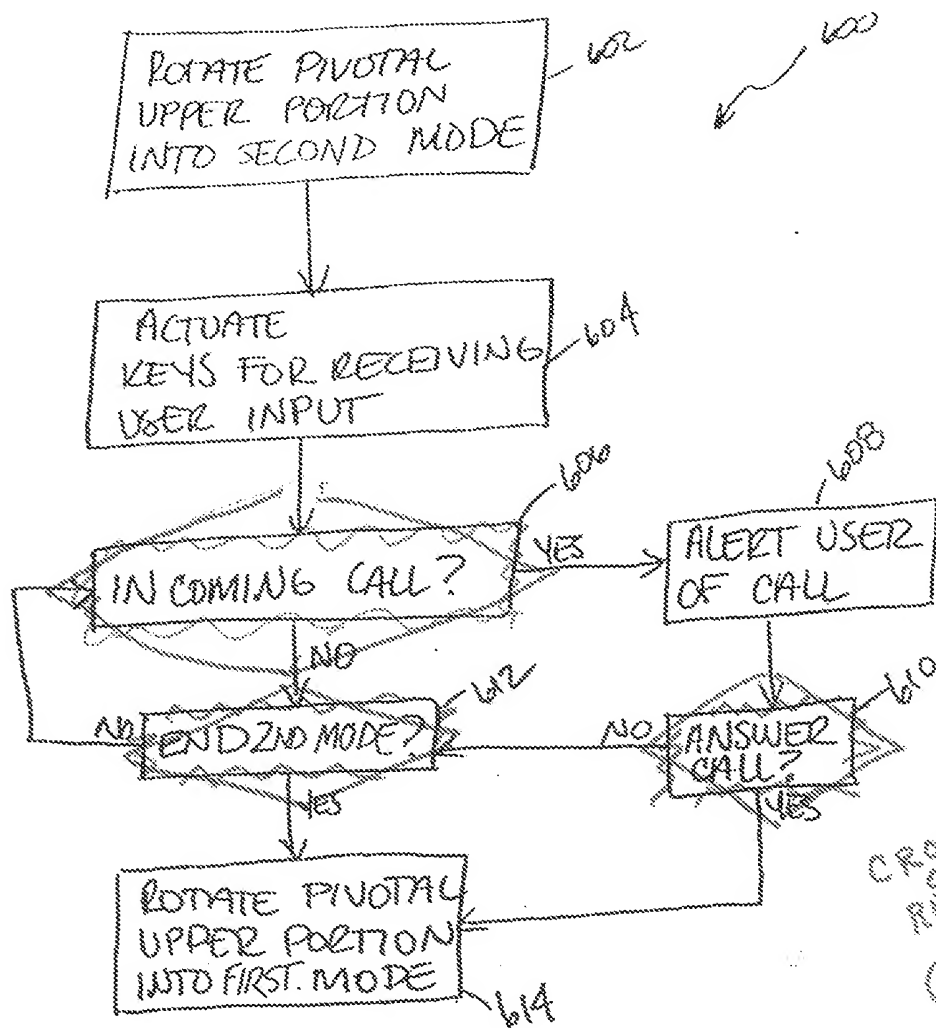 600
ROTATE PIVOTAL
UPPER PORTION
INTO SECOND MODE
602
ACTUATE
KEYS FOR RECEIVING
USER INPUT
604
606
INCOMING CALL?
YES
NO
608
ALERT USER
OF CALL
610
ANSWER
CALL?
NO
YES
612
END 2ND MODE?
NO
YES
ROTATE PIVOTAL
UPPER PORTION
INTO FIRST. MODE
614